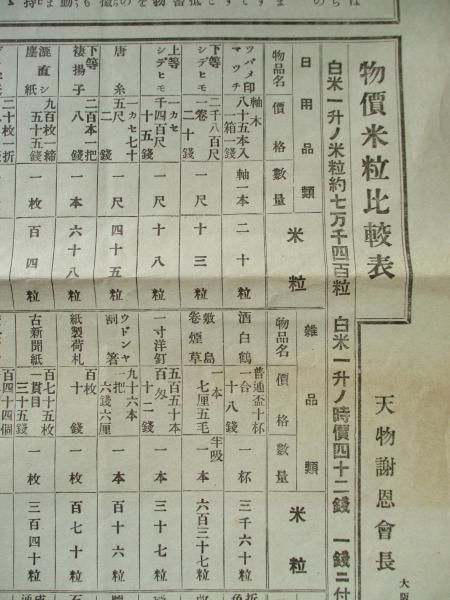 物價米粒比較表
天物謝恩會長
大阪
白米一升ノ米粒約七万千四百粒 白米一升ノ時價四十二錢 一錢ニ付
日用品類
物品名
價格
數量
米粒
ツバメ印マッチ
軸木八十五本入一箱一錢
軸一本
二十粒
下等シデヒモ
二千八百尺一卷二十錢
一尺
十三粒
上等シデヒモ
一カセ千四百尺十五錢
一尺
十八粒
唐糸
一カセ七十五尺二錢
一尺
四十五粒
下等褄揚子
二百本一把八錢
一本
六十八粒
漉直シ塵紙
九百枚一締五十五錢
一枚
百四粒
二十枚一折
雜品類
物品名
價格
數量
米粒
酒白鶴
普通盃十杯一合十八錢
一杯
三千六十粒
敷島卷煙草
一本七厘五毛
半吸一本
六百三十七粒
一寸洋釘
五百五十本百匁十二錢
一本
三十七粒
ウドンヤ割箸
九十六本一把六錢六厘
一本
百十六粒
紙製荷札
百枚十錢
一枚
百七十粒
古新聞紙
百七十五枚一貫目三十五錢
一枚
三百四十粒
百四十四個